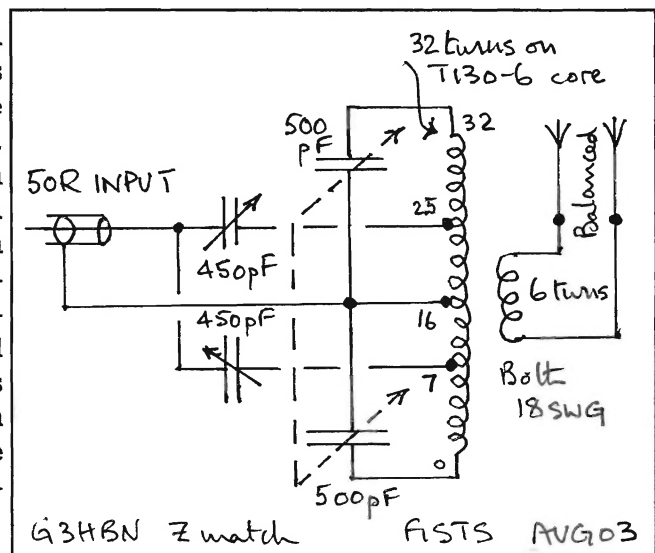 32 turns on
T130-6 core
500
pF
32
50R INPUT
25
450pF
Balanced
450pF
16
6 turns
7
Both
18 SWG
0
500pF
G3HBN Z match FISTS AUG 03